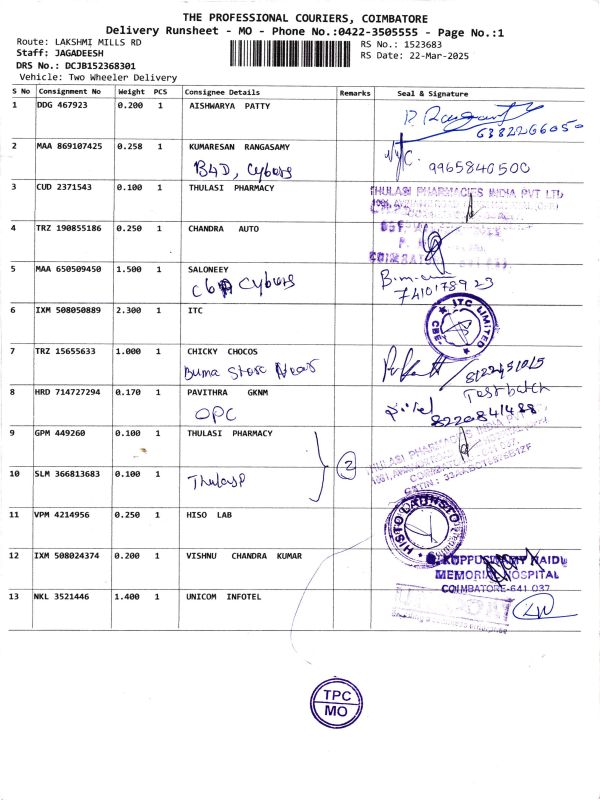 THE PROFESSIONAL COURIERS, COIMBATORE
Delivery Runsheet - MO - Phone No.:0422-3505555 - Page No.:1
Route: LAKSHMI MILLS RD
RS No.: 1523683
Staff: JAGADEESH
RS Date: 22-Mar-2025
DRS No.: DCJB152368301
Vehicle: Two Wheeler Delivery
S No Consignment No Weight PCS Consignee Details Remarks Seal & Signature
1 DDG 467923 0.200 1 AISHWARYA PATTY
6382266050
2 MAA 869107425 0.258 1 KUMARESAN RANGASAMY
B4D, Cybers
9965840500
3 CUD 2371543 0.100 1 THULASI PHARMACY
THULASI PHARMACIES INDIA PVT LTD
4 TRZ 190855186 0.250 1 CHANDRA AUTO
5 MAA 650509450 1.500 1 SALONEEY
Cybers
7410178923
6 IXM 508050889 2.300 1 ITC
ITC LIMITED
CBE
7 TRZ 15655633 1.000 1 CHICKY CHOCOS
Buma Store Near
8 HRD 714727294 0.170 1 PAVITHRA GKNM
OPC
8220841488
9 GPM 449260 0.100 1 THULASI PHARMACY
2
THULASI PHARMACIES INDIA PVT LTD
10 SLM 366813683 0.100 1
ThulasP
11 VPM 4214956 0.250 1 HISO LAB
12 IXM 508024374 0.200 1 VISHNU CHANDRA KUMAR
KUPPUSWAMY NAIDU
MEMORIAL HOSPITAL
COIMBATORE-641 037
13 NKL 3521446 1.400 1 UNICOM INFOTEL
TPC
MO